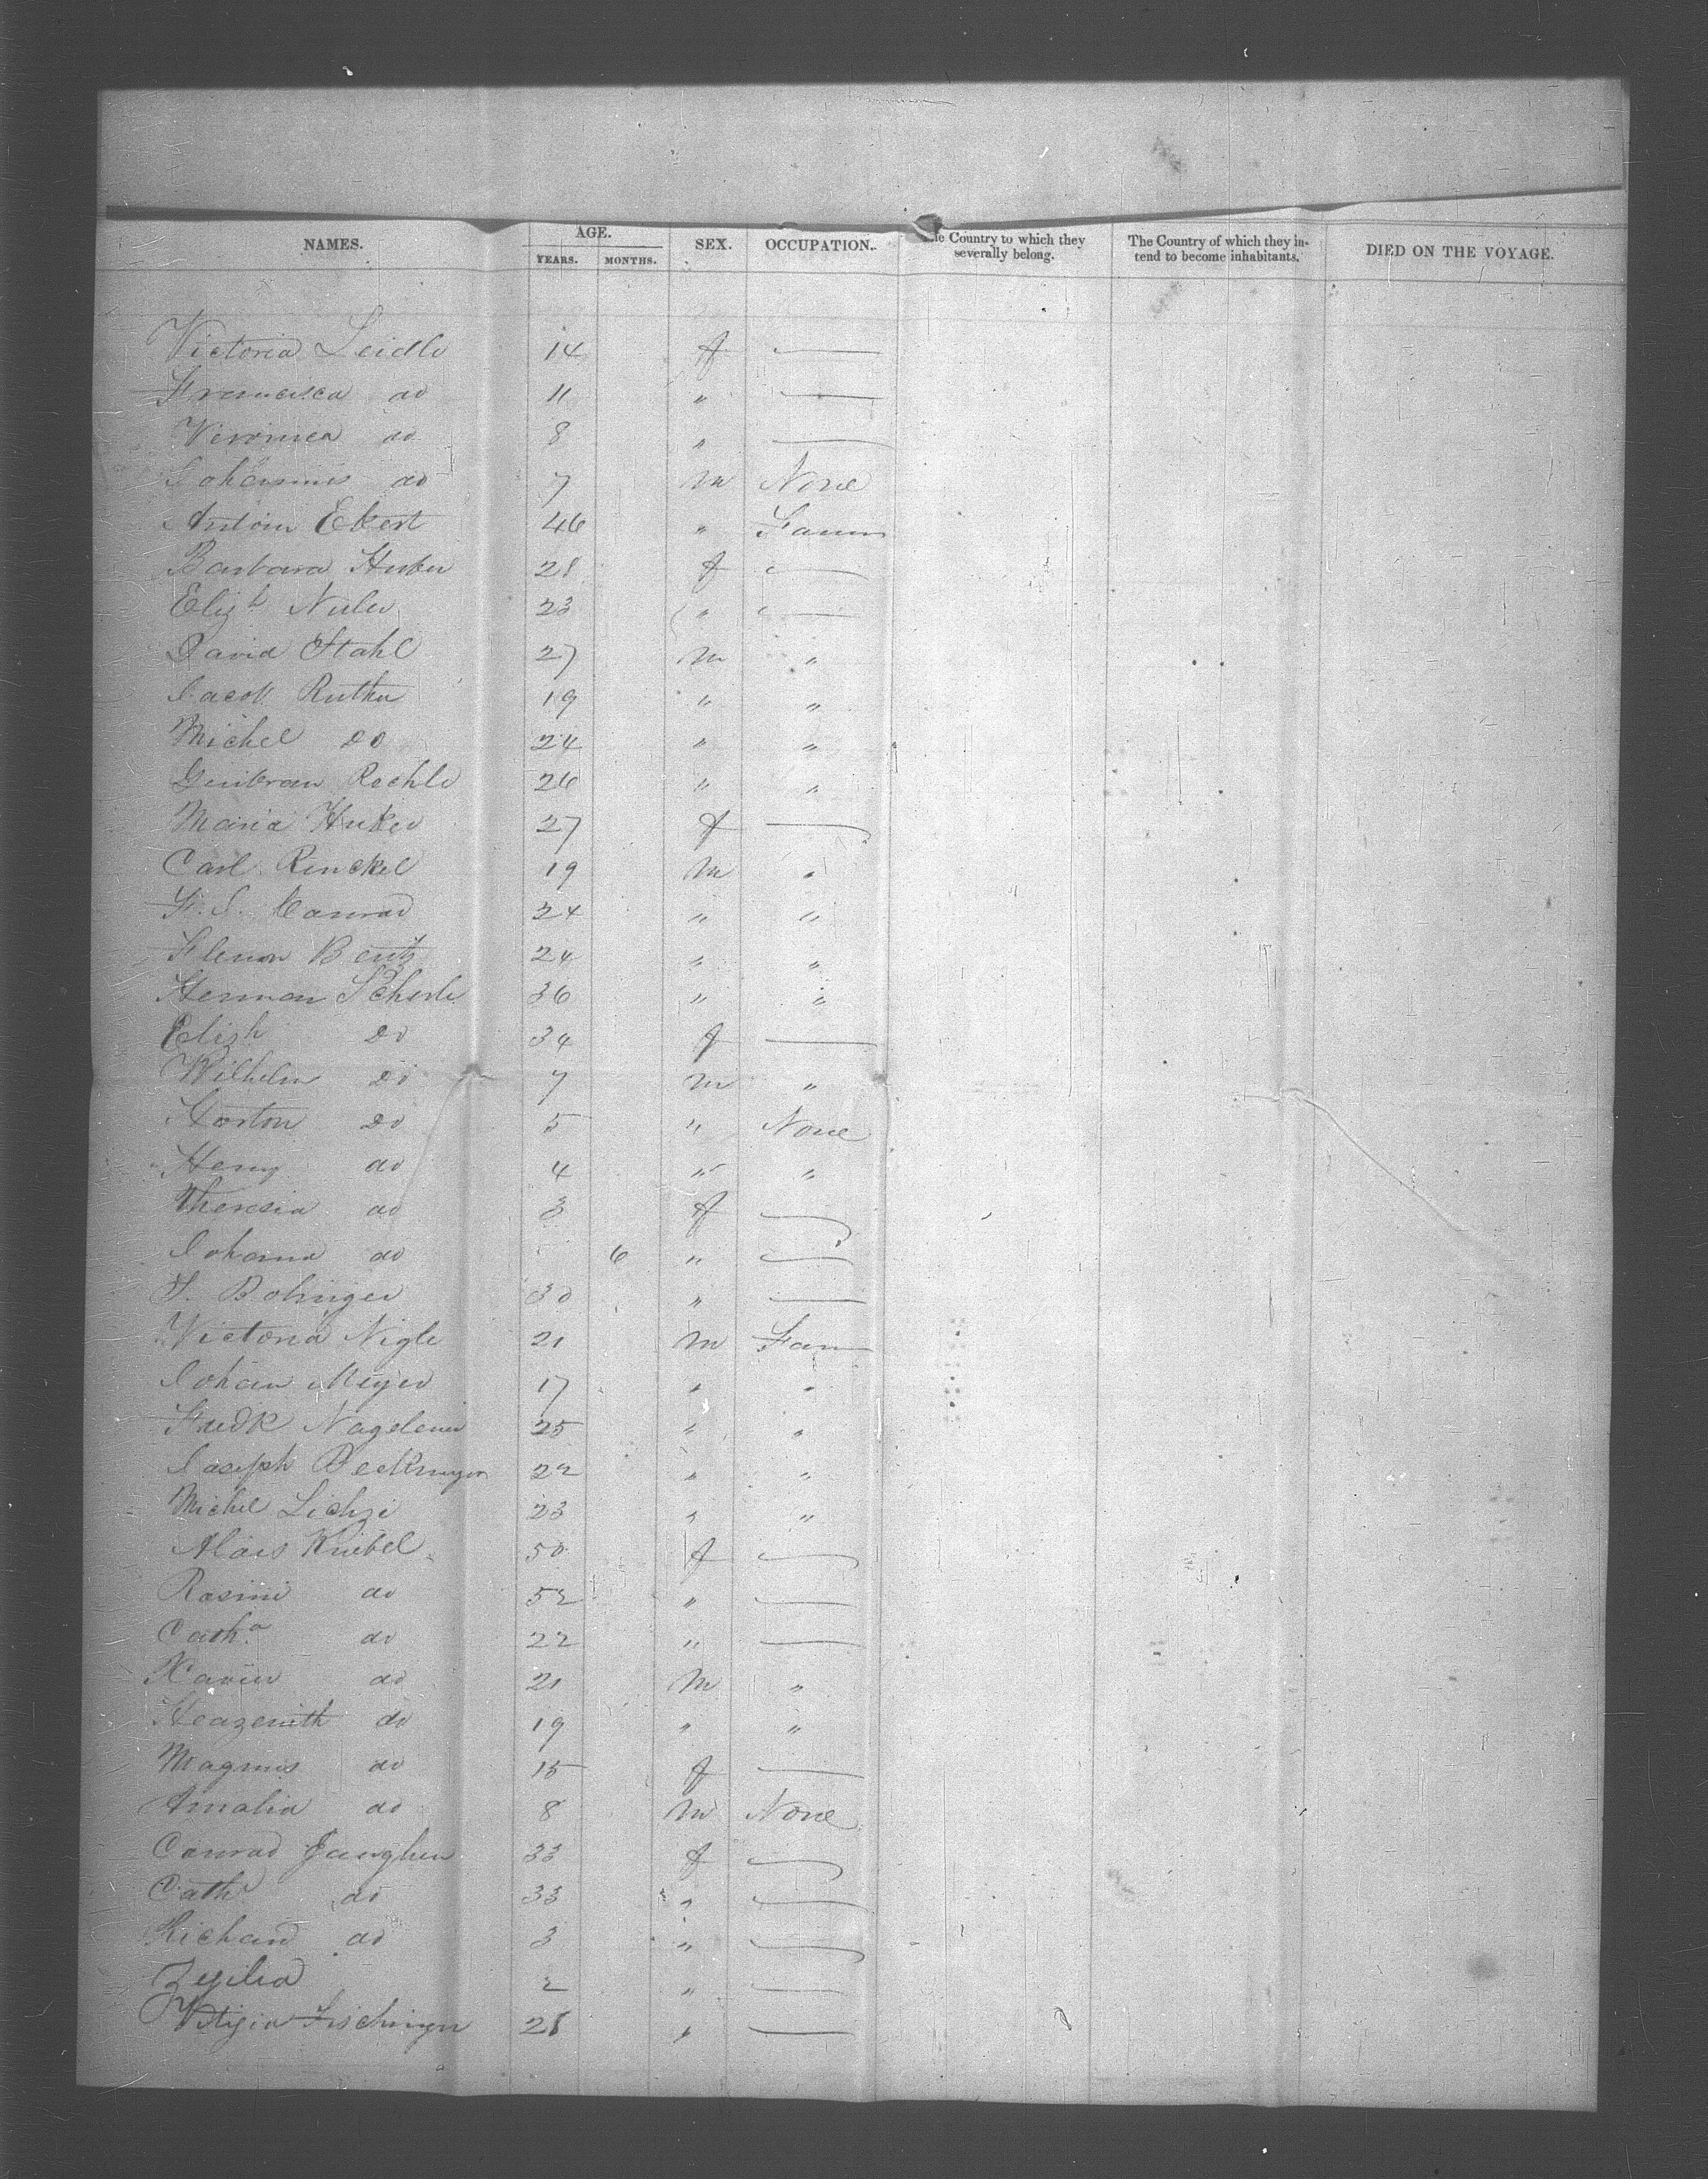 NAMES. AGE. SEX. OCCUPATION. The Country to which they severally belong. The Country of which they intend to become inhabitants. DIED ON THE VOYAGE.
YEARS. MONTHS.
Victoria Leidle 14 f —
Francisca do 11 " —
Veronica do 8 " —
Johannis do 7 m None
Antoin Ekert 46 " Farm
Barbara Huber 28 f —
Eliz.h 23 " —
David Stahl 27 m "
Jacob Ruther 19 " "
Michel Do 24 " "
Rechle 26 " "
Maria Huber 27 f —
Carl Renckel 19 m "
F. J. Conrad 24 " "
Bentz 24 " "
Herman Scherle 36 " "
Elizh Do 34 f —
Wilhelm Do 7 m "
Horton Do 5 " None
Henry do 4 " "
Theresia do 3 f —
Johanna do 6 " —
Bolinger 30 " —
Victoria Nigle 21 m Farm
Johan Meyer 17 " "
Fredk 25 " "
Joseph Beckmeyer 22 " "
Michel 23 " "
Alois Kniebel 50 f —
Rosini do 52 " —
Cath.a do 22 " —
Xavier do 21 m "
do 19 " "
Magnus do 15 f —
Amalia do 8 m None
Conrad 33 f —
Cath do 33 " —
Richard do 3 " —
Zezilia 2 " —
28 " —